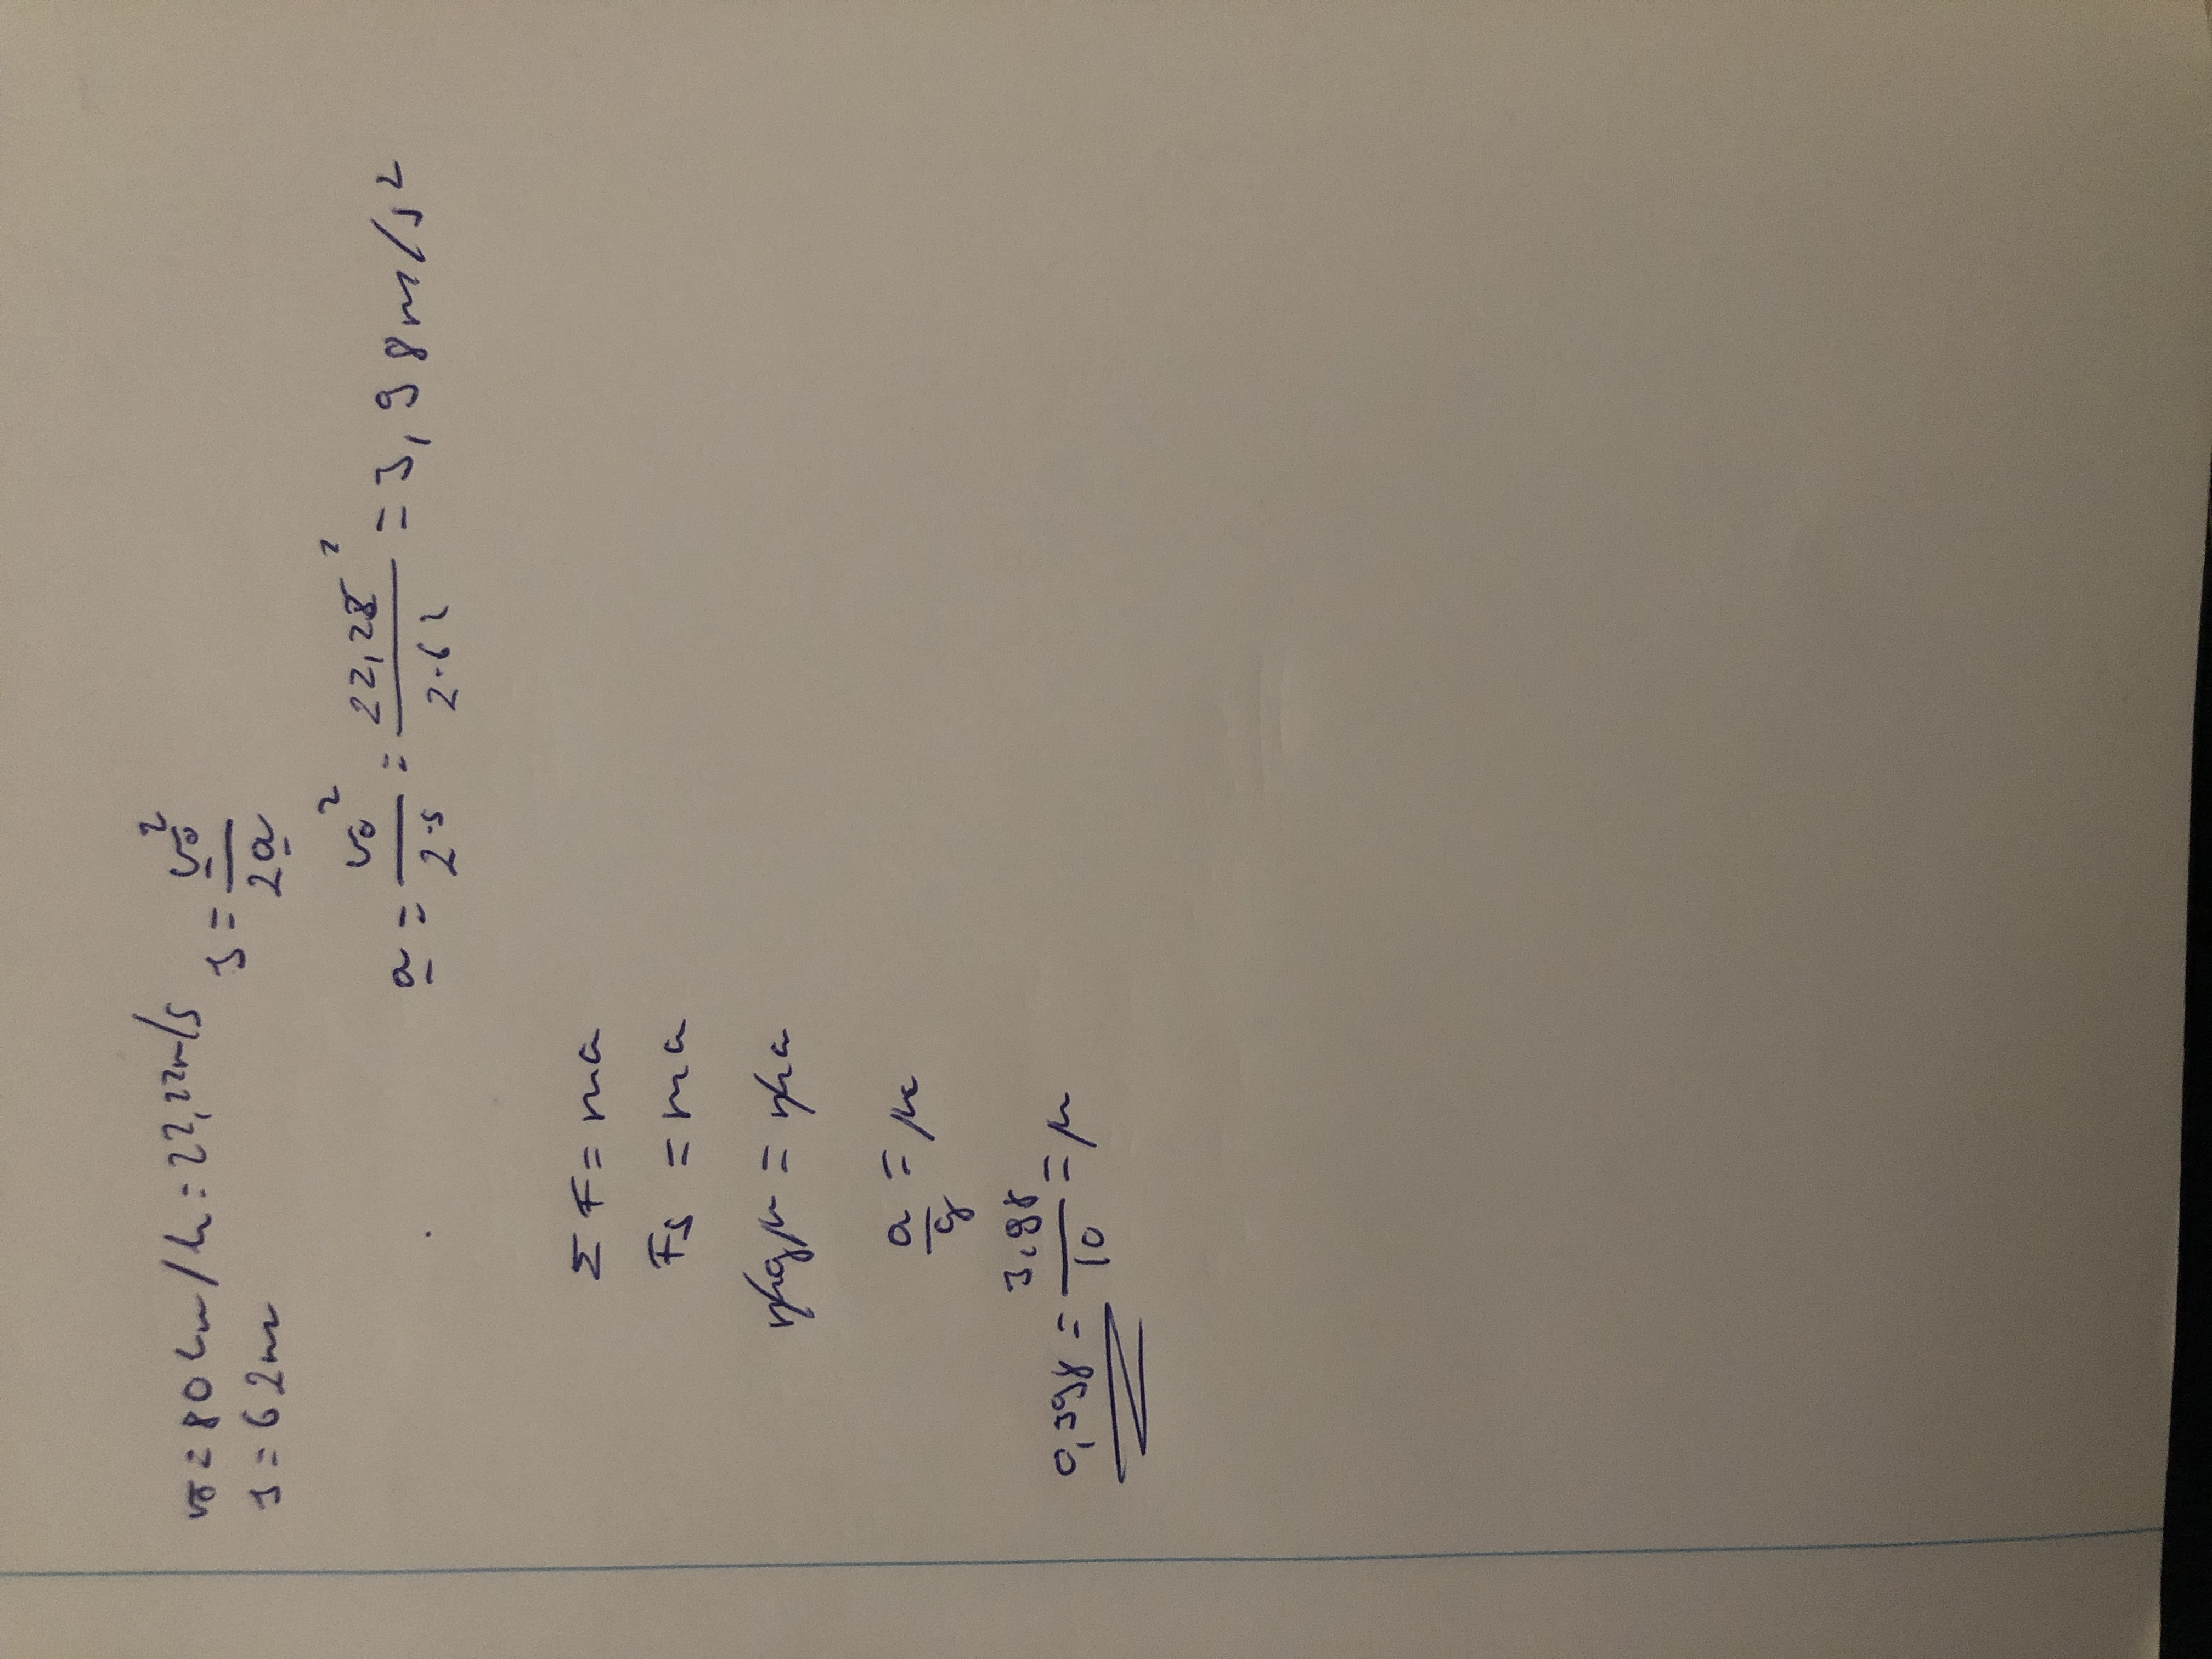 v₀ = 80 km/h = 22,22 m/s   s = v₀²/2a
s = 62 m
a = v₀²/2·s = 22,22²/2·62 = 3,98 m/s²
ΣF = ma
Fs = ma
mgμ = ma
a/g = μ
0,398 = 3,98/10 = μ